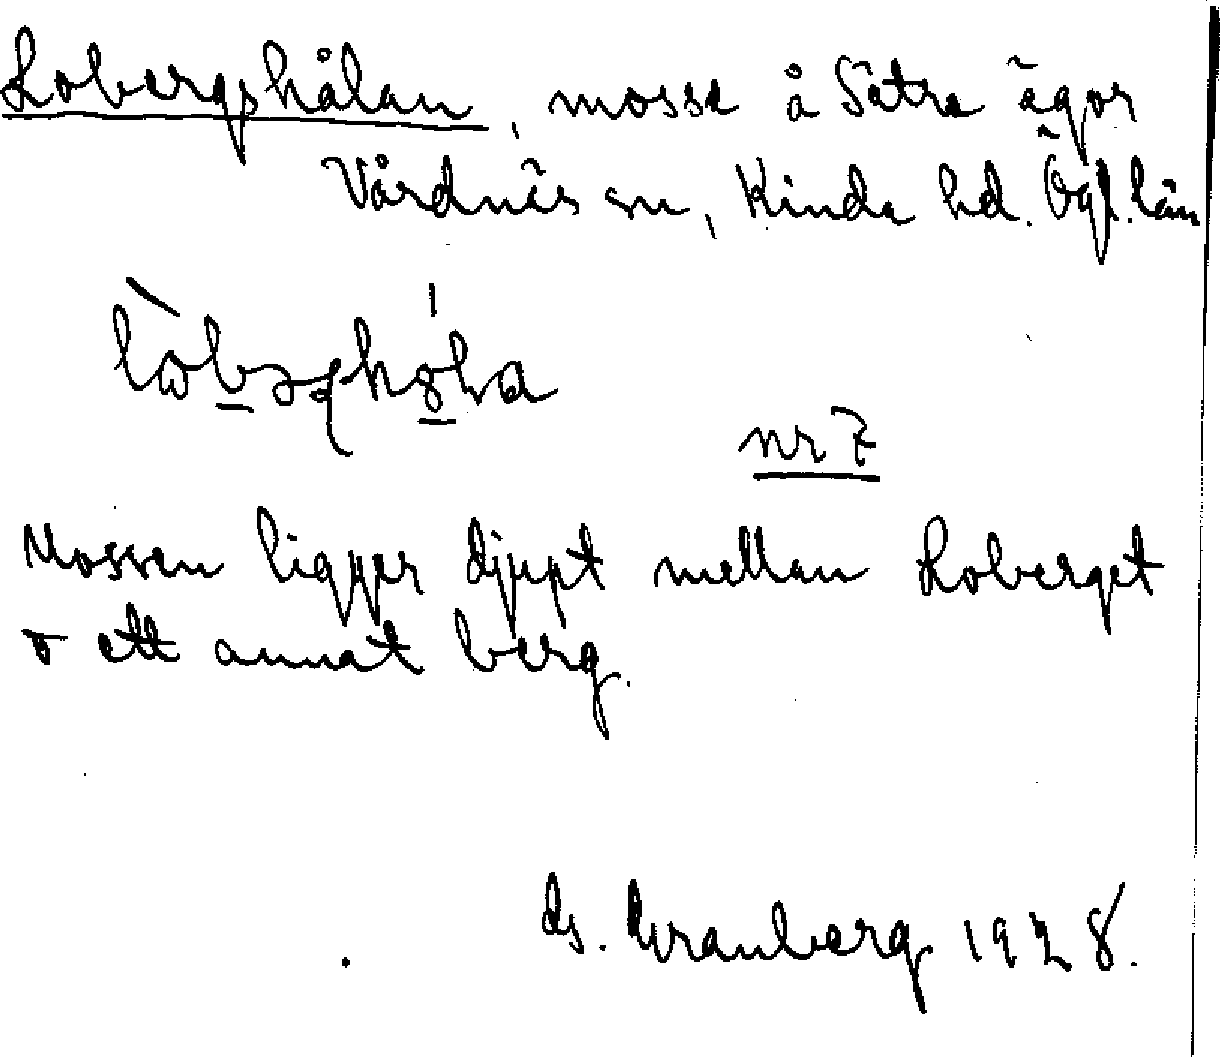 Lobergshålan, mosse å Sätra ägor
Vårdnäs sn, Kinda hd. Ögl. län
nr 7
Mossen ligger djupt mellan Loberget
o ett annat berg.
1928.